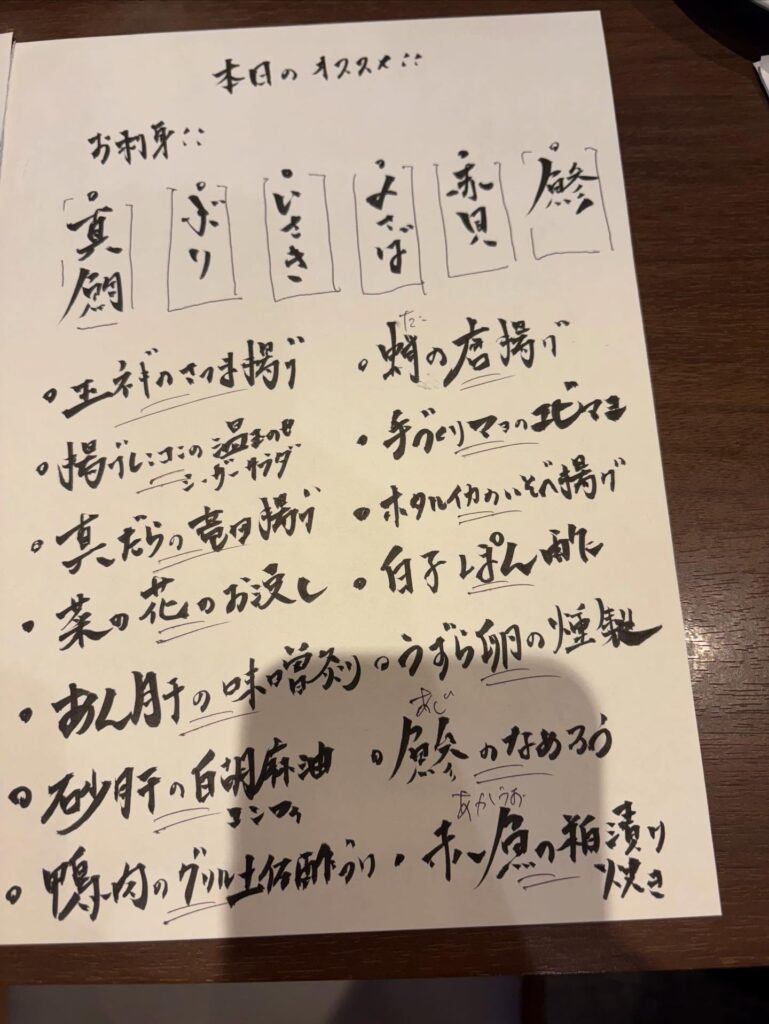 本日のオススメ::
お刺身::
真鯛
ぶり
いさき
〆さば
赤貝
鯵
玉ネギのさつま揚げ
揚げレンコンの温玉のせ
シーザーサラダ
真だらの竜田揚げ
菜の花のお浸し
あん肝の味噌炙り
砂肝の白胡麻油
コンフィ
鴨肉のグリル土佐酢づけ
たこ
蛸の唐揚げ
手づくりマヨのエビマヨ
ホタルイカのいそべ揚げ
白子ぽん酢
うずら卵の燻製
あじ
鯵のなめろう
あかうお
赤魚の粕漬け
焼き